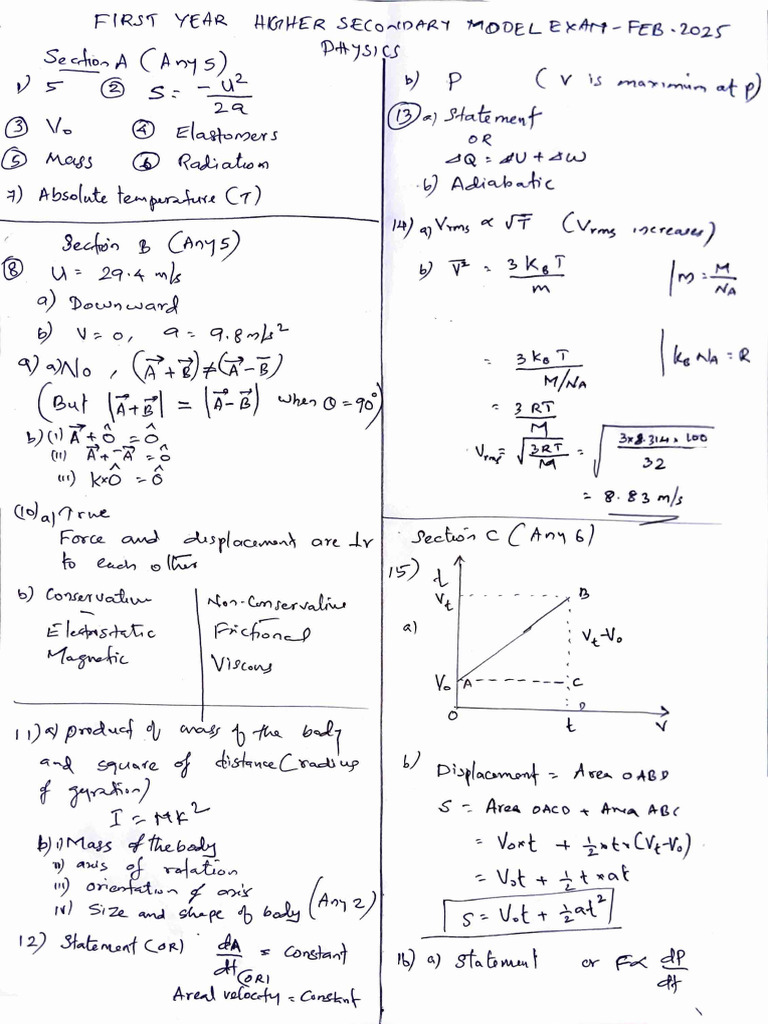 FIRST YEAR HIGHER SECONDARY MODEL EXAM-FEB.2025
PHYSICS
Section A (Any 5)
1) 5 ② S = -U²/2a
③ V₀ ④ Elastomers
⑤ Mass ⑥ Radiation
7) Absolute temperature (T)
Section B (Any 5)
⑧ U = 29.4 m/s
a) Downward
b) V=0, a = 9.8 m/s²
9) a) No, (A⃗+B⃗) ≠ (A⃗-B⃗)
(But |A⃗+B⃗| = |A⃗-B⃗| when θ=90°)
b) (i) A⃗+0̂ = 0̂
(ii) A⃗+-A⃗ = 0̂
(iii) k×0̂ = 0̂
(10) a) True
Force and displacement are ⊥r
to each other
b) Conservative | Non-Conservative
Electrostatic | Frictional
Magnetic | Viscous
11) a) product of mass of the body
and square of distance (radius
of gyration)
I = MK²
b) i) Mass of the body
ii) axis of rotation
iii) orientation of axis
iv) Size and shape of body (Any 2)
12) Statement (OR) dA/dt = constant
(OR)
Areal velocity = Constant
b) P (V is maximum at P)
⑬ a) Statement
OR
ΔQ = ΔU + ΔW
b) Adiabatic
14) a) Vrms ∝ √T (Vrms increases)
b) V̅² = 3 K_B T/m | m = M/NA
= 3 K_B T/M/NA | K_B NA = R
= 3RT/M
Vrms = √(3RT/M) = √(3×8.314×100/32)
= 8.83 m/s
Section C (Any 6)
15) t
Vt B
a) Vt-V₀
V₀ A C
O t D V
b) Displacement = Area OABD
S = Area OACD + Area ABC
= V₀×t + ½×t×(Vt-V₀)
= V₀t + ½ t×at
S = V₀t + ½at²
16) a) Statement or F∝ dP/dt